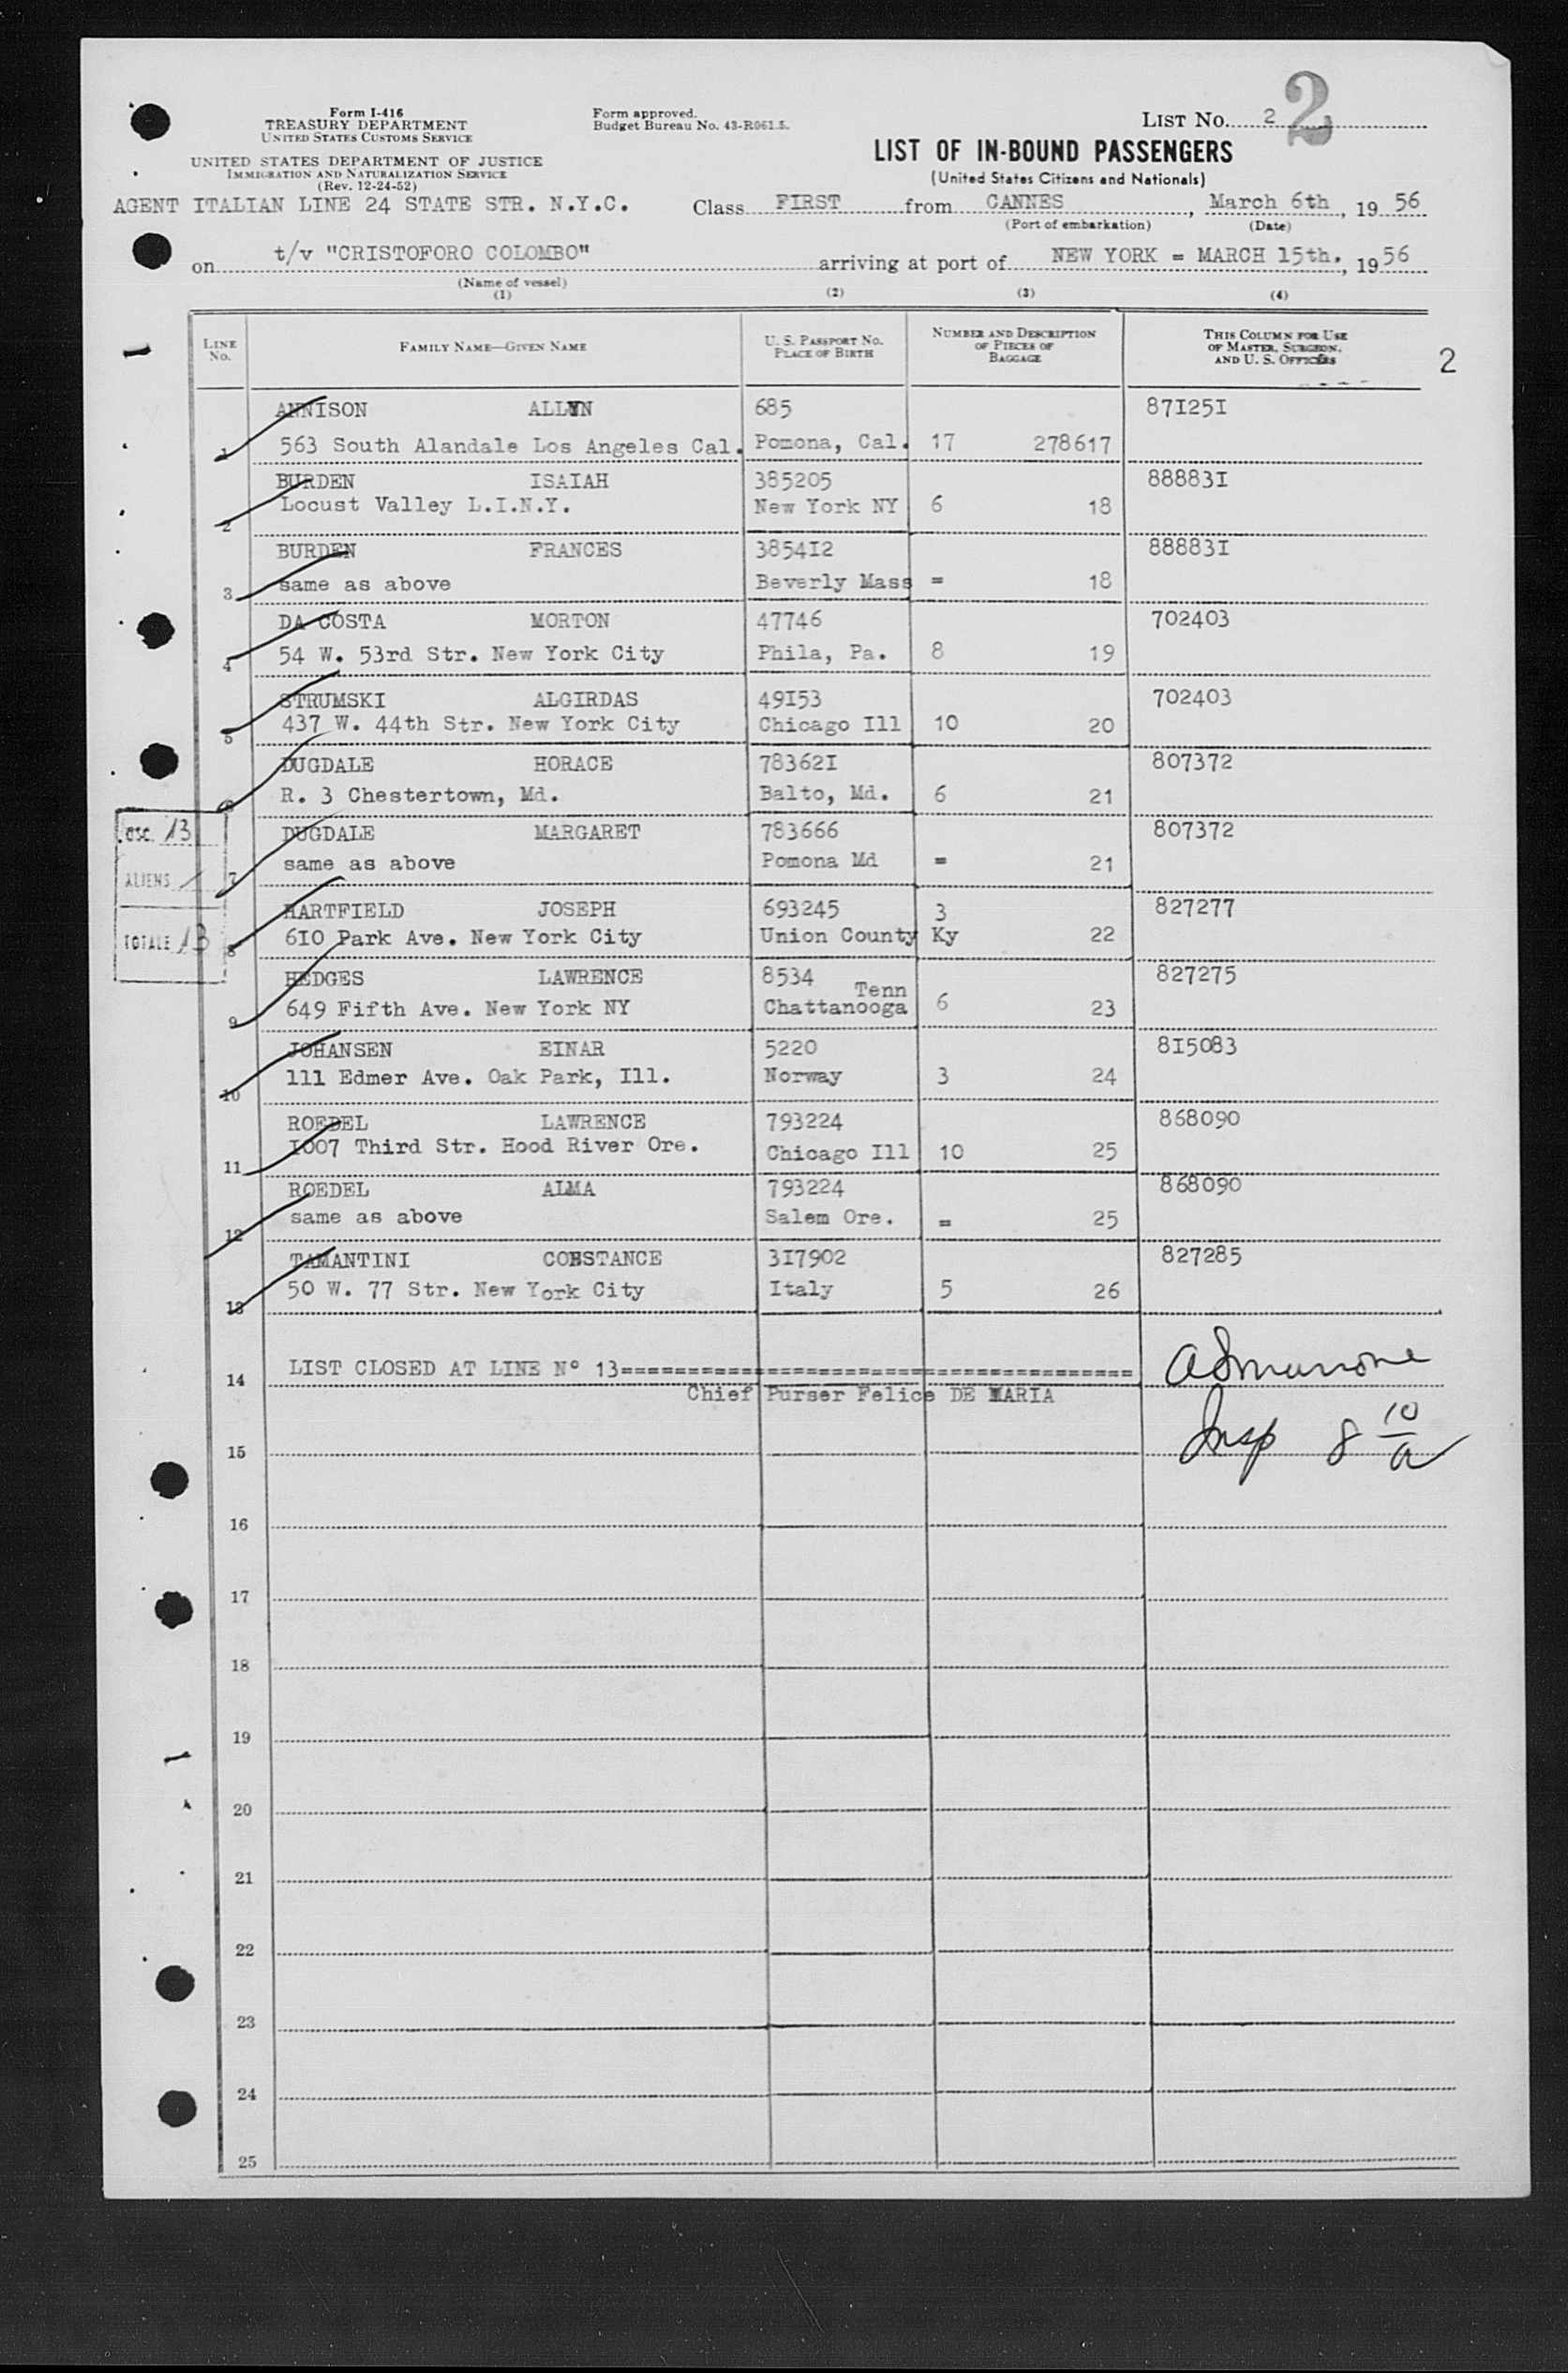 Form I-416
TREASURY DEPARTMENT
UNITED STATES CUSTOMS SERVICE
UNITED STATES DEPARTMENT OF JUSTICE
IMMIGRATION AND NATURALIZATION SERVICE
(Rev. 12-24-52)
Form approved.
Budget Bureau No. 43-R061.5.
LIST No. 2 2
LIST OF IN-BOUND PASSENGERS
(United States Citizens and Nationals)
AGENT ITALIAN LINE 24 STATE STR. N.Y.C.
Class FIRST from CANNES, March 6th, 19 56
(Port of embarkation) (Date)
on t/v "CRISTOFORO COLOMBO" arriving at port of NEW YORK = MARCH 15th., 1956
(Name of vessel)
(1) (2) (3) (4)
LINE No. FAMILY NAME—GIVEN NAME U. S. PASSPORT No. PLACE OF BIRTH NUMBER AND DESCRIPTION OF PIECES OF BAGGAGE THIS COLUMN FOR USE OF MASTER, SURGEON, AND U. S. OFFICERS
2
ANNISON ALLYN 685 871251
1 563 South Alandale Los Angeles Cal. Pomona, Cal. 17 278617
BURDEN ISAIAH 385205 888831
2 Locust Valley L.I.N.Y. New York NY 6 18
BURDEN FRANCES 385412 888831
3 same as above Beverly Mass = 18
DA COSTA MORTON 47746 702403
4 54 W. 53rd Str. New York City Phila, Pa. 8 19
STRUMSKI ALGIRDAS 49153 702403
5 437 W. 44th Str. New York City Chicago Ill 10 20
DUGDALE HORACE 783621 807372
6 R. 3 Chestertown, Md. Balto, Md. 6 21
DUGDALE MARGARET 783666 807372
7 same as above Pomona Md = 21
HARTFIELD JOSEPH 693245 3 827277
8 610 Park Ave. New York City Union County Ky 22
HEDGES LAWRENCE 8534 Tenn 827275
9 649 Fifth Ave. New York NY Chattanooga 6 23
JOHANSEN EINAR 5220 815083
10 111 Edmer Ave. Oak Park, Ill. Norway 3 24
ROEDEL LAWRENCE 793224 868090
11 1007 Third Str. Hood River Ore. Chicago Ill 10 25
ROEDEL ALMA 793224 868090
12 same as above Salem Ore. = 25
TAMANTINI CONSTANCE 317902 827285
13 50 W. 77 Str. New York City Italy 5 26
14 LIST CLOSED AT LINE N° 13=======================================
Chief Purser Felice DE MARIA
Insp 8 10/a
15
16
17
18
19
20
21
22
23
24
25
13
ALIENS /
TOTALE 13